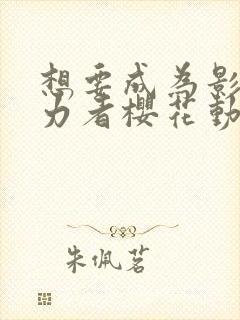 想要成為影
力者櫻花動
朱佩茗